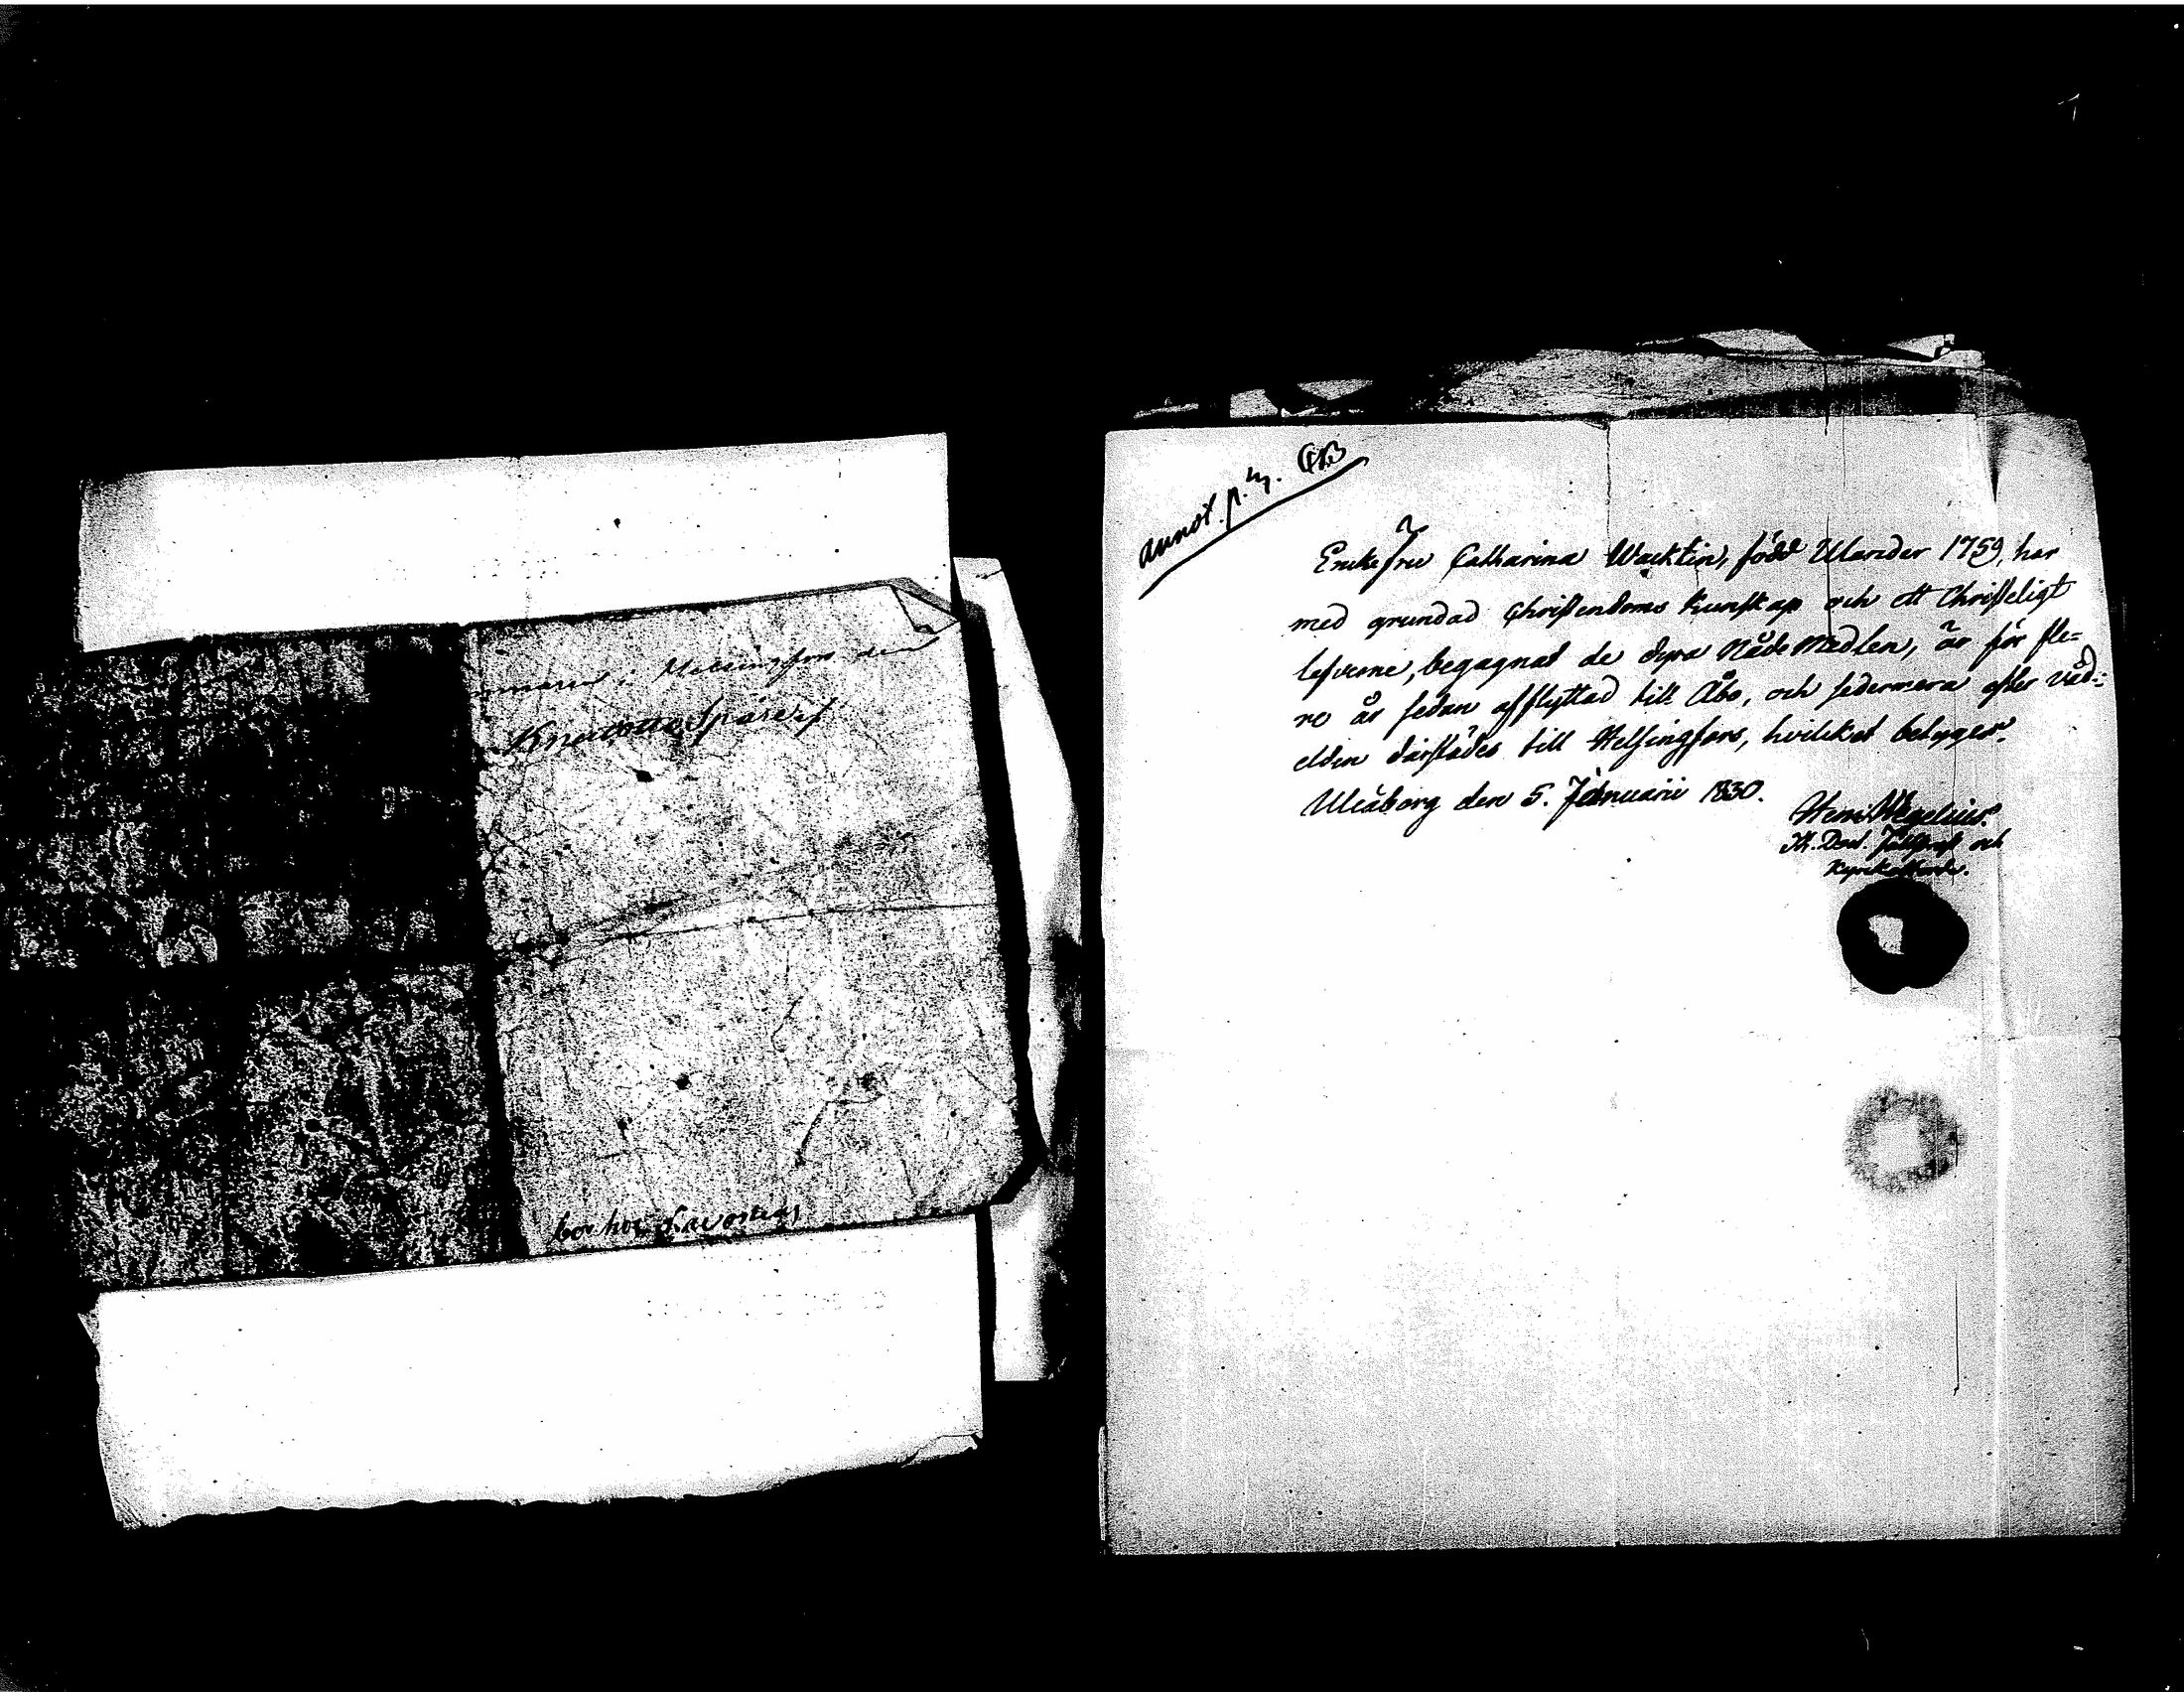 i Helsingfors den
bor hos
annot. p.
Enkefru Catharina Wacklin, född Ulander 1759, har
med grundad Christendoms kunskap och ett Christeligt
lefverne, begagnat de dyra Nåde Medlen, är för fle=
re år sedan afflyttad till Åbo, och sedermera efter våd=
elden därstädes till Helsingfors, hvilket betygar.
Uleåborg den 5. Januarii 1830.
Henr. Wegelius.
och